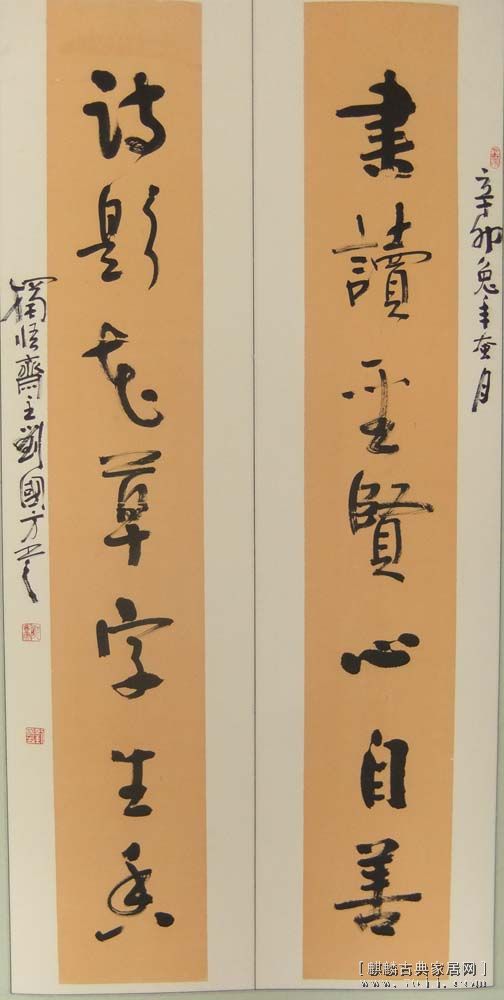 辛卯兔年月
書讀聖賢心自善
詩題花草字生香
獨悟齋主劉國方書
[麒麟古典家居网]